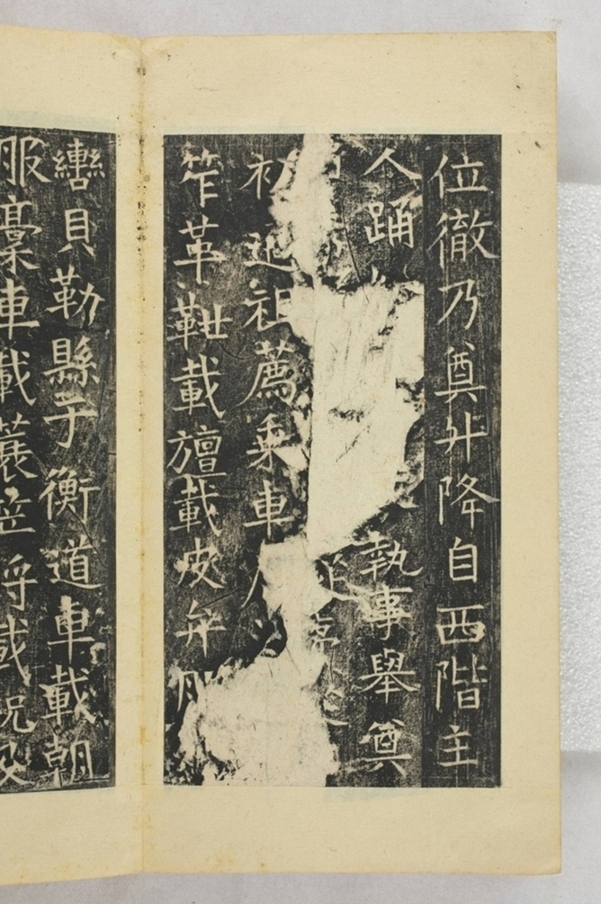 位徹乃奠升降自西階主
人踊執事舉奠
初適祖薦乘車
笮革靾載旜載皮弁服
轡貝勒縣于衡道車載朝
服稾車載蓑笠將載祝及